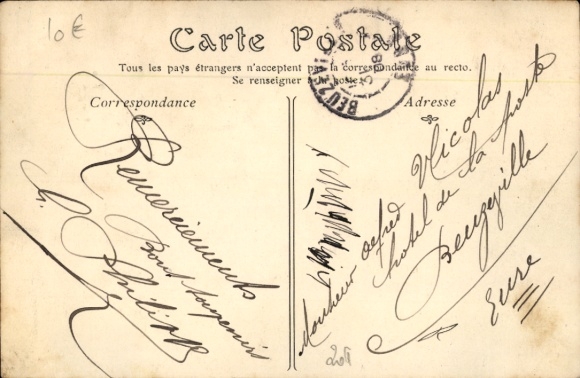 10€
Carte Postale
Tous les pays étrangers n'acceptent pas la correspondance au recto.
Se renseigner à la poste.
Correspondance
Adresse
Remerciements
Bons souvenirs
G. Philipp
Monsieur Alfred Nicolas
hotel de la poste
Beuzeville
Eure
BEUZEVI